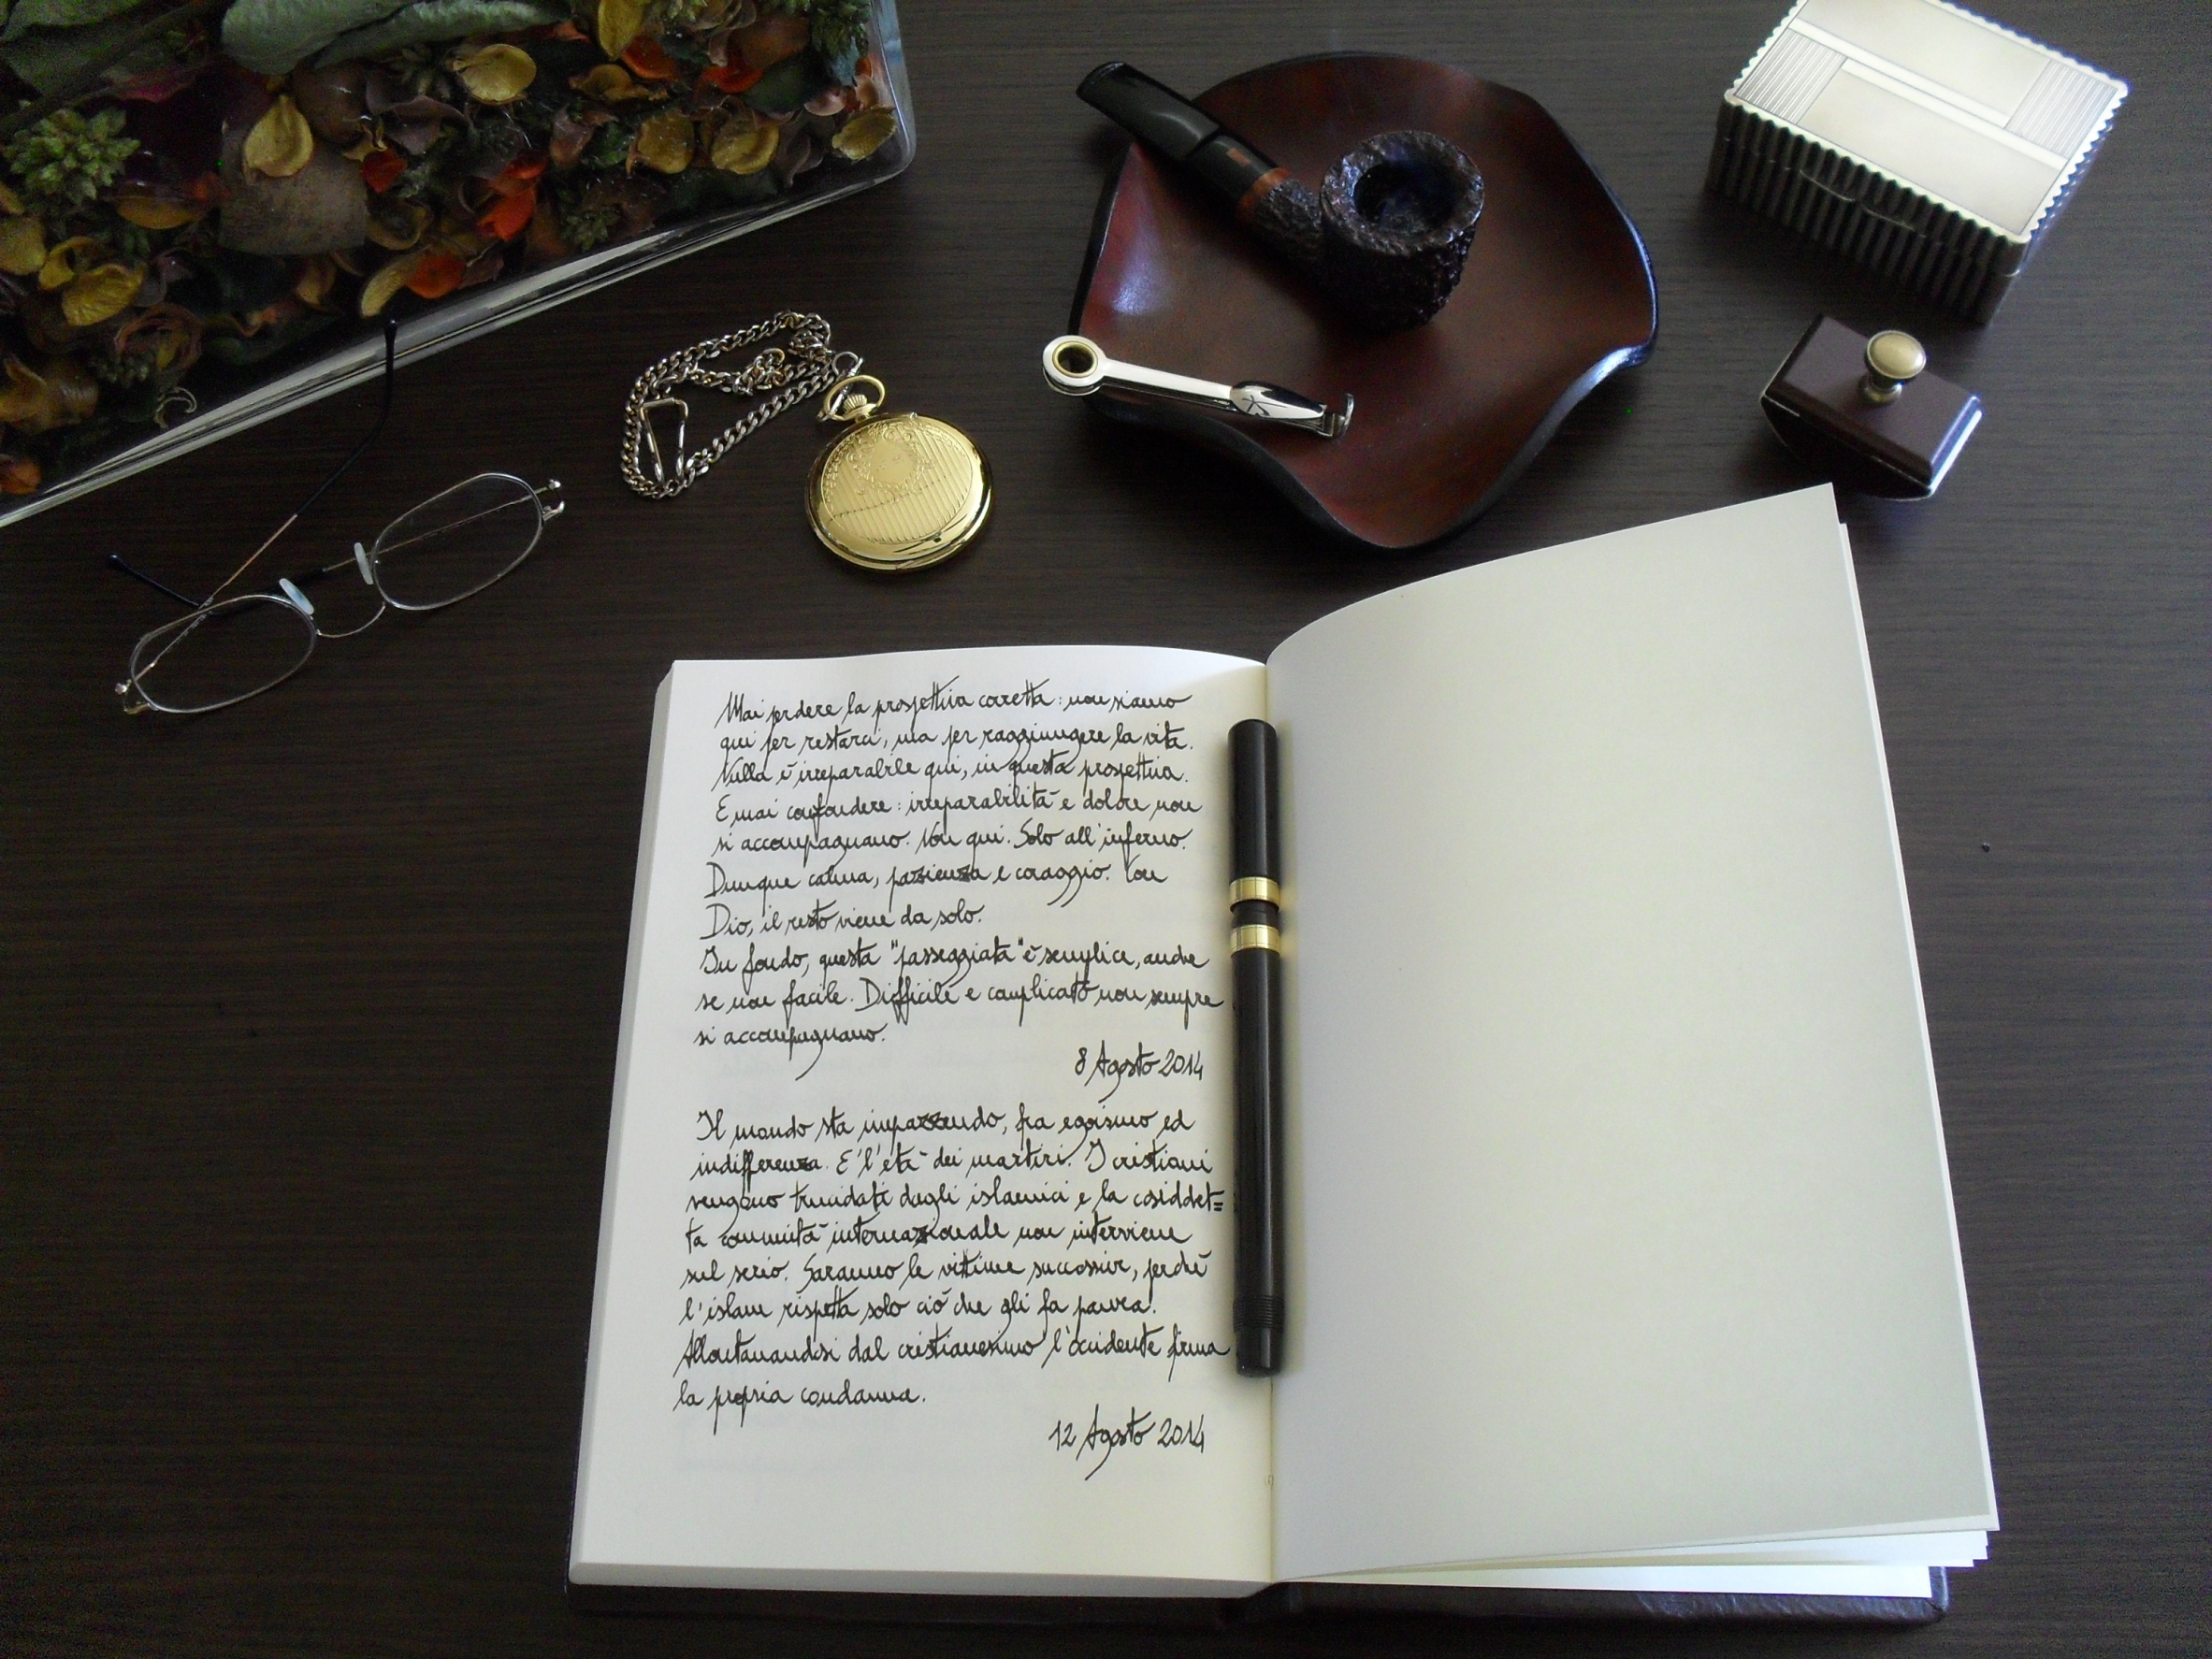 Mai perdere la prospettiva corretta: non siamo
qui per restarci, ma per raggiungere la vita.
Nulla è irreparabile qui, in questa prospettiva.
E mai confondere: irreparabilità e dolore non
si accompagnano. Non qui. Solo all'inferno.
Dunque calma, pazienza e coraggio. Con
Dio, il resto viene da solo.
In fondo, questa "passeggiata" è semplice, anche
se non facile. Difficile e complicato non sempre
si accompagnano.
8 Agosto 2014
Il mondo sta impazzendo, fra egoismo ed
indifferenza. E' l'età dei martiri. I cristiani
vengono trucidati dagli islamici e la cosiddet=
ta comunità internazionale non interviene
sul serio. Saranno le vittime successive, perché
l'islam rispetta solo ciò che gli fa paura.
Allontanandosi dal cristianesimo l'occidente firma
la propria condanna.
12 Agosto 2014